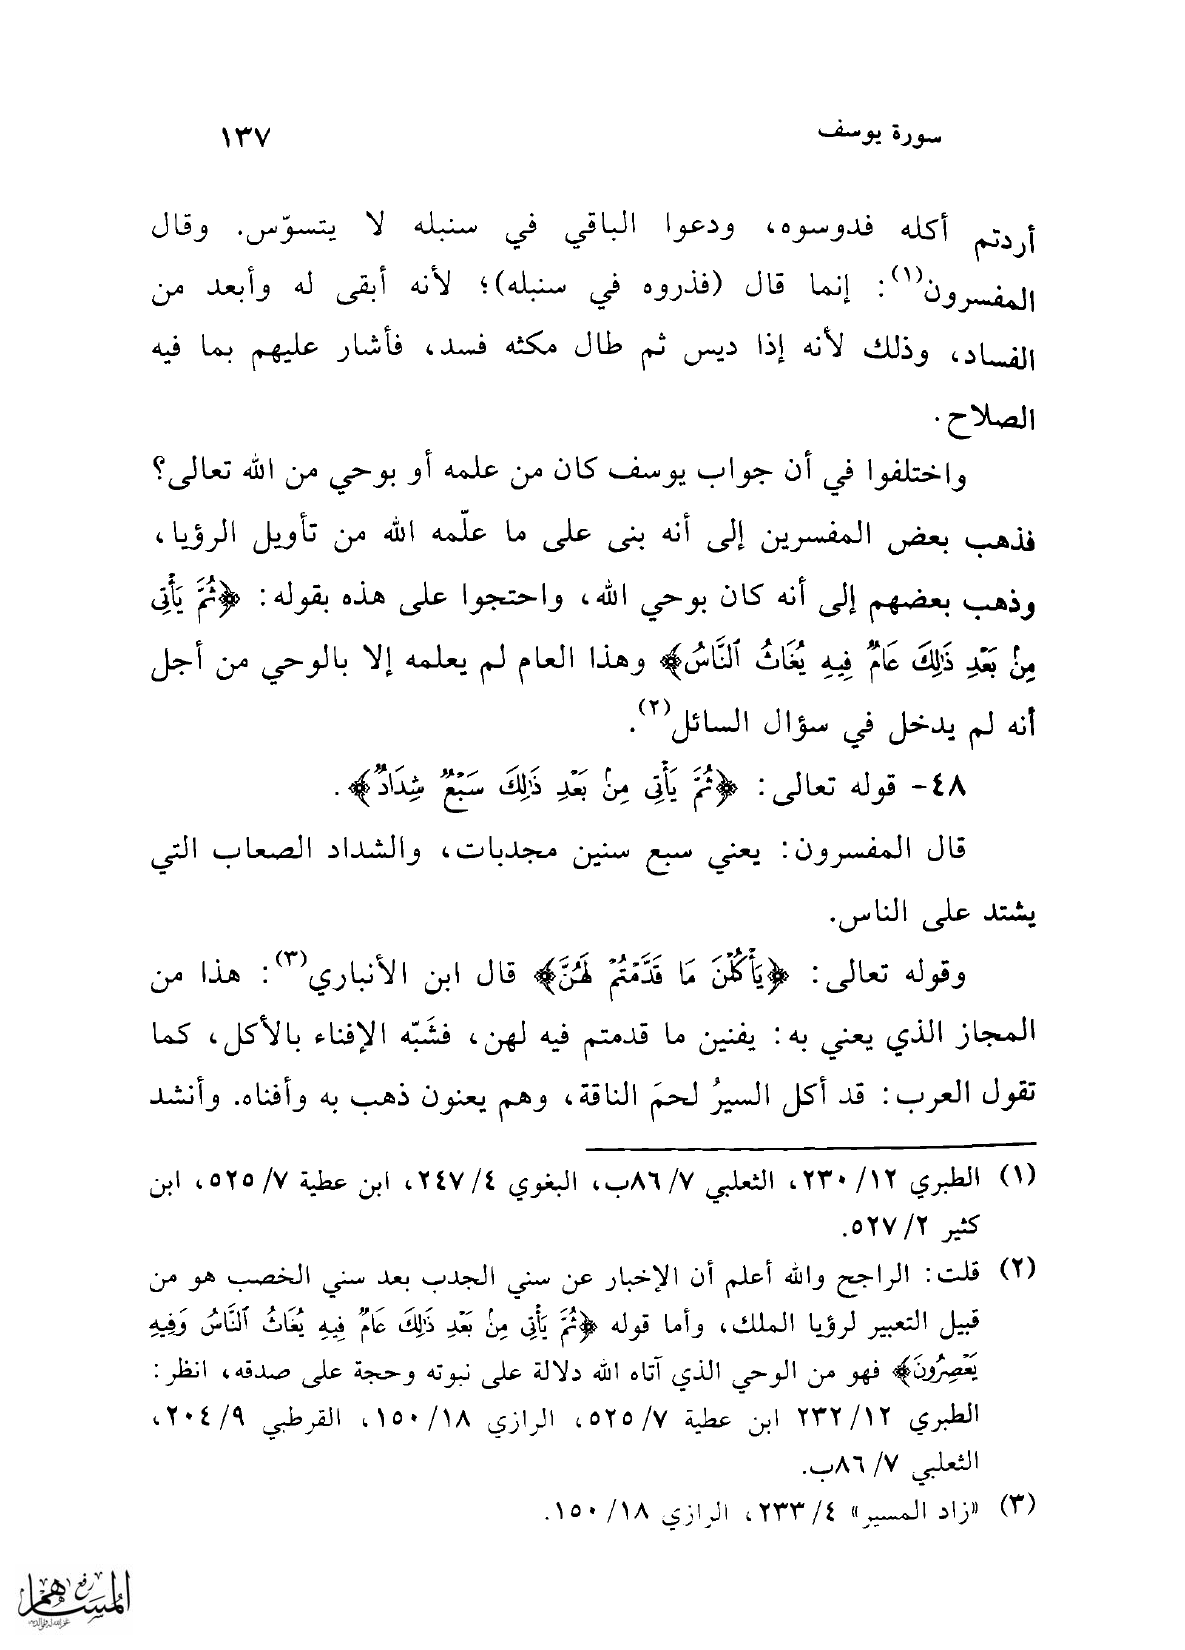 سورة يوسف ١٣٧
أردتم أكله فدوسوه، ودعوا الباقي في سنبله لا يتسوّس. وقال
المفسرون(١): إنما قال (فذروه في سنبله)؛ لأنه أبقى له وأبعد من
الفساد، وذلك لأنه إذا ديس ثم طال مكثه فسد، فأشار عليهم بما فيه
الصلاح.
واختلفوا في أن جواب يوسف كان من علمه أو بوحي من الله تعالى؟
فذهب بعض المفسرين إلى أنه بنى على ما علّمه الله من تأويل الرؤيا،
وذهب بعضهم إلى أنه كان بوحي الله، واحتجوا على هذه بقوله: ﴿ثُمَّ يَأْتِي
مِنۢ بَعْدِ ذَٰلِكَ عَامٌ فِيهِ يُغَاثُ ٱلنَّاسُ﴾ وهذا العام لم يعلمه إلا بالوحي من أجل
أنه لم يدخل في سؤال السائل(٢).
٤٨- قوله تعالى: ﴿ثُمَّ يَأْتِي مِنۢ بَعْدِ ذَٰلِكَ سَبْعٌ شِدَادٌ﴾.
قال المفسرون: يعني سبع سنين مجدبات، والشداد الصعاب التي
يشتد على الناس.
وقوله تعالى: ﴿يَأْكُلْنَ مَا قَدَّمْتُمْ لَهُنَّ﴾ قال ابن الأنباري(٣): هذا من
المجاز الذي يعني به: يفنين ما قدمتم فيه لهن، فشَبّه الإفناء بالأكل، كما
تقول العرب: قد أكل السيرُ لحمَ الناقة، وهم يعنون ذهب به وأفناه. وأنشد
(١) الطبري ١٢/ ٢٣٠، الثعلبي ٧/ ٨٦ب، البغوي ٤/ ٢٤٧، ابن عطية ٧/ ٥٢٥، ابن
كثير ٢/ ٥٢٧.
(٢) قلت: الراجح والله أعلم أن الإخبار عن سني الجدب بعد سني الخصب هو من
قبيل التعبير لرؤيا الملك، وأما قوله ﴿ثُمَّ يَأْتِي مِنۢ بَعْدِ ذَٰلِكَ عَامٌ فِيهِ يُغَاثُ ٱلنَّاسُ وَفِيهِ
يَعْصِرُونَ﴾ فهو من الوحي الذي آتاه الله دلالة على نبوته وحجة على صدقه، انظر:
الطبري ١٢/ ٢٣٢ ابن عطية ٧/ ٥٢٥، الرازي ١٨/ ١٥٠، القرطبي ٩/ ٢٠٤،
الثعلبي ٧/ ٨٦ب.
(٣) «زاد المسير» ٤/ ٢٣٣، الرازي ١٨/ ١٥٠.